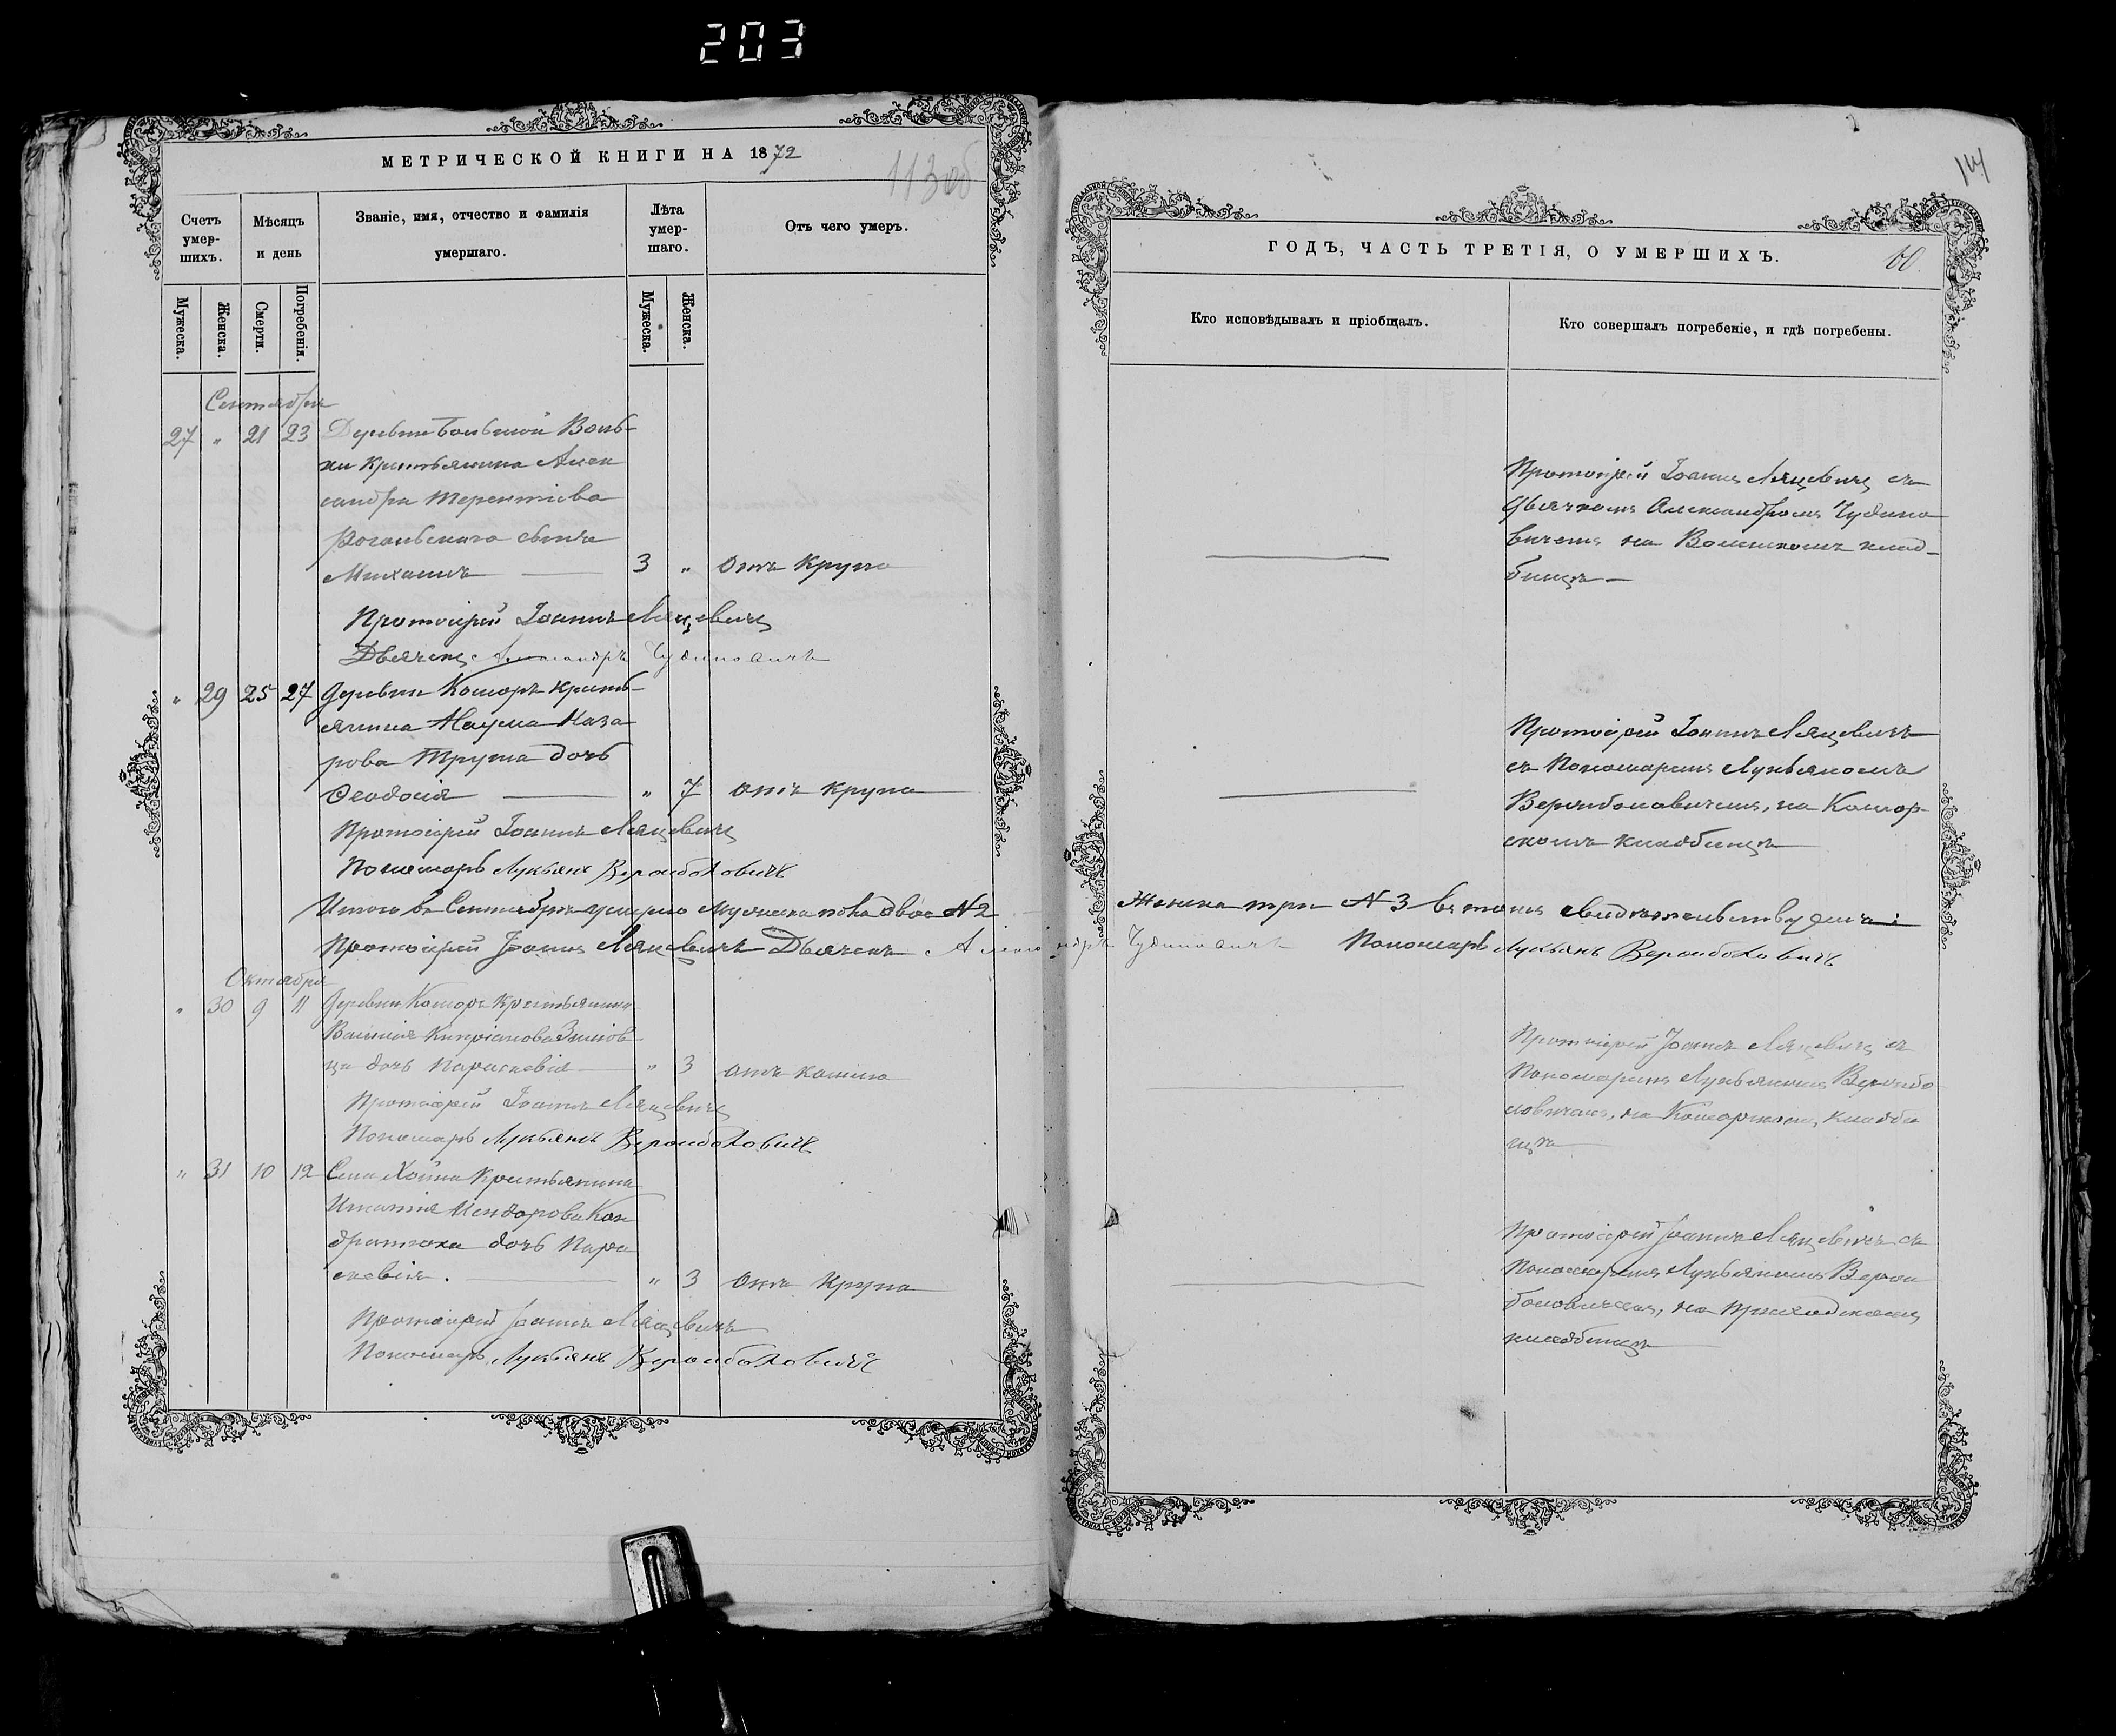 203
МЕТРИЧЕСКОЙ КНИГИ НА 1872
113 об
Счетъ умер-шихъ.
Мѣсяцъ и день
Званіе, имя, отчество и фамилія умершаго.
Лѣта умер-шаго.
Отъ чего умеръ.
Мужеска.
Женска.
Смерти.
Погребенія.
Мужеска.
Женска.
Сентября
27 " 21 23 Деревни Большой Воль-
ки крестьянина Алек
сандра Терентіева
Рогальскаго сынъ
Михаилъ 3 " отъ Крупа
Протоіерей Іоаннъ Ляцевичъ
Дьячекъ Александръ Чудиновичъ
" 29 25 27 Деревни Коморъ кресть-
янина Наума Наза
рова Труша дочь
Ѳеодосія " 7 отъ крупа
Протоіерей Іоаннъ Ляцевичъ
Пономарь Лукьянъ
Итого въ Сентябрѣ умерло мужеска пола двое № 2
Протоіерей Іоаннъ Ляцевичъ Дьячекъ Александръ Чудиновичъ
Октября
" 30 9 11 Деревни Коморъ крестьянина
Василія Кипріанова
дочь Параскевія " 3 отъ кашля
Протоіерей Іоаннъ Ляцевичъ
Пономарь Лукьянъ
" 31 10 12 Села Хойна Крестьянина
Игнатія Кон
дратюка дочь Пара
скевія. " 3 Отъ Крупа
Протоіерей Іоаннъ Ляцевичъ
Пономарь Лукьянъ
114
ГОДЪ, ЧАСТЬ ТРЕТІЯ, О УМЕРШИХЪ.
60.
Кто исповѣдывалъ и пріобщалъ.
Кто совершалъ погребеніе, и гдѣ погребены.
Протоіерей Іоаннъ Ляцевичъ съ
Дьячкомъ Александромъ Чудино
вичемъ на клад-
бищѣ
Протоіерей Іоаннъ Ляцевичъ
съ Пономаремъ Лукьяномъ
на Комор-
скомъ кладбищѣ
Женска три № 3 въ томъ свидѣтельствуемъ:
Пономарь Лукьянъ
Протоіерей Іоаннъ Ляцевичъ съ
Пономаремъ Лукьяномъ
на Коморскомъ кладби
щѣ
Протоіерей Іоаннъ Ляцевичъ съ
Пономаремъ Лукьяномъ
на Приходскомъ
кладбищѣ